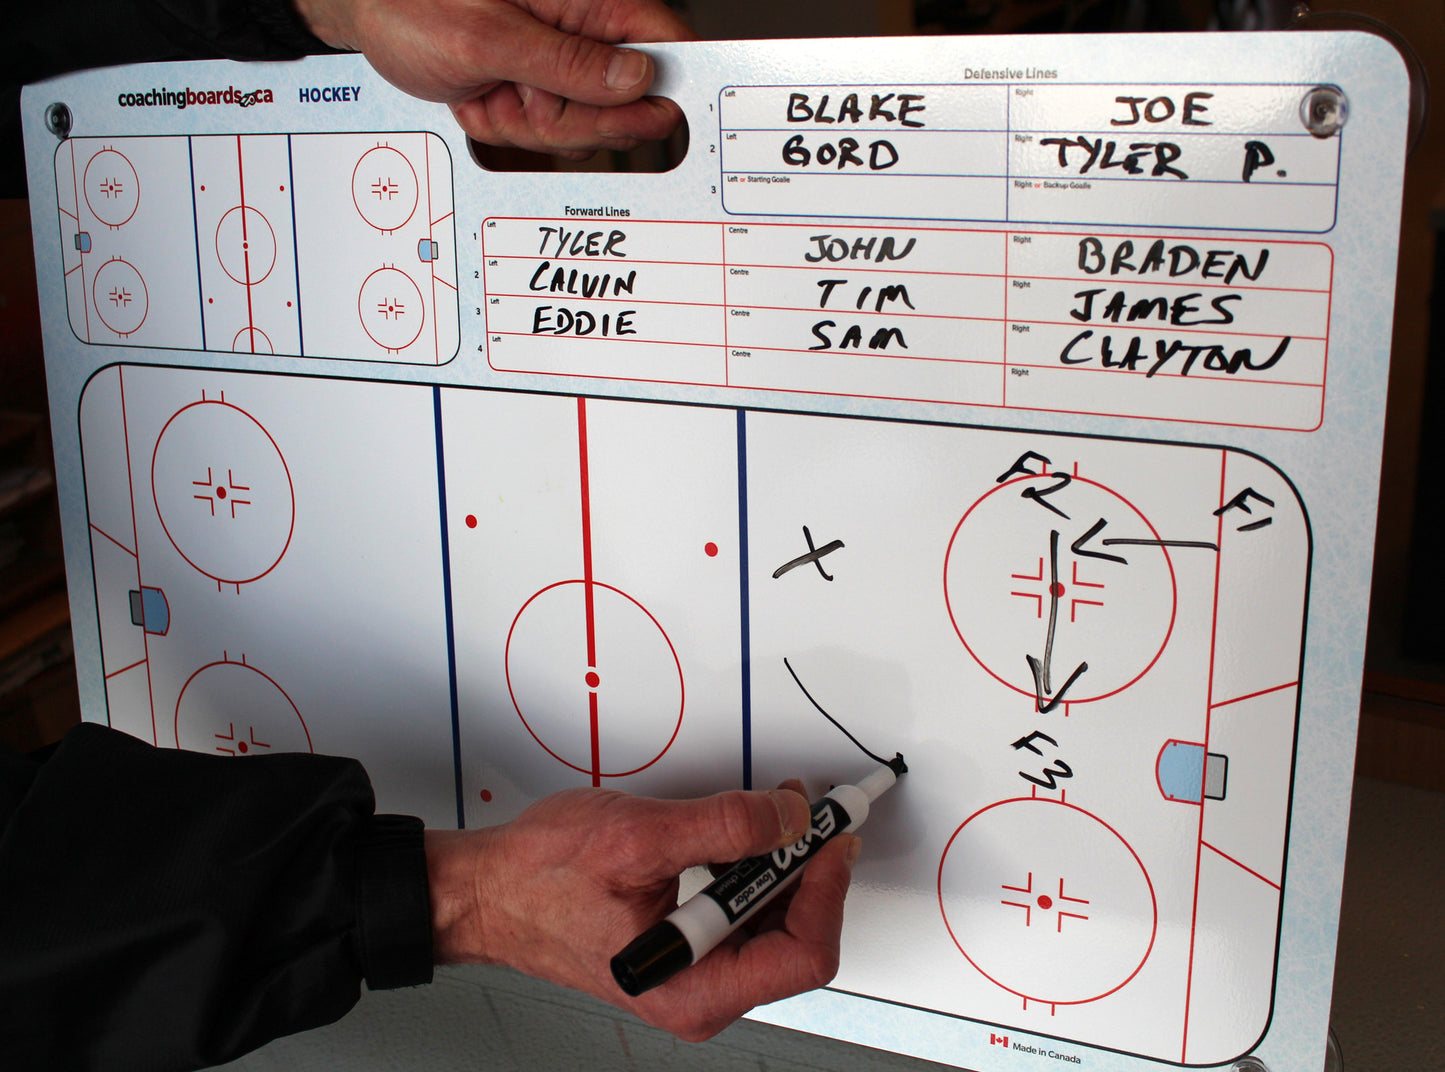 coachingboards.ca HOCKEY
Defensive Lines
1 Left BLAKE Right JOE
2 Left GORD Right TYLER P.
3 Left or Starting Goalie Right or Backup Goalie
Forward Lines
1 Left TYLER Centre JOHN Right BRADEN
2 Left CALVIN Centre TIM Right JAMES
3 Left EDDIE Centre SAM Right CLAYTON
4 Left Centre Right
F2
F1
X
F3
EXPO
low odor
chisel
Made in Canada